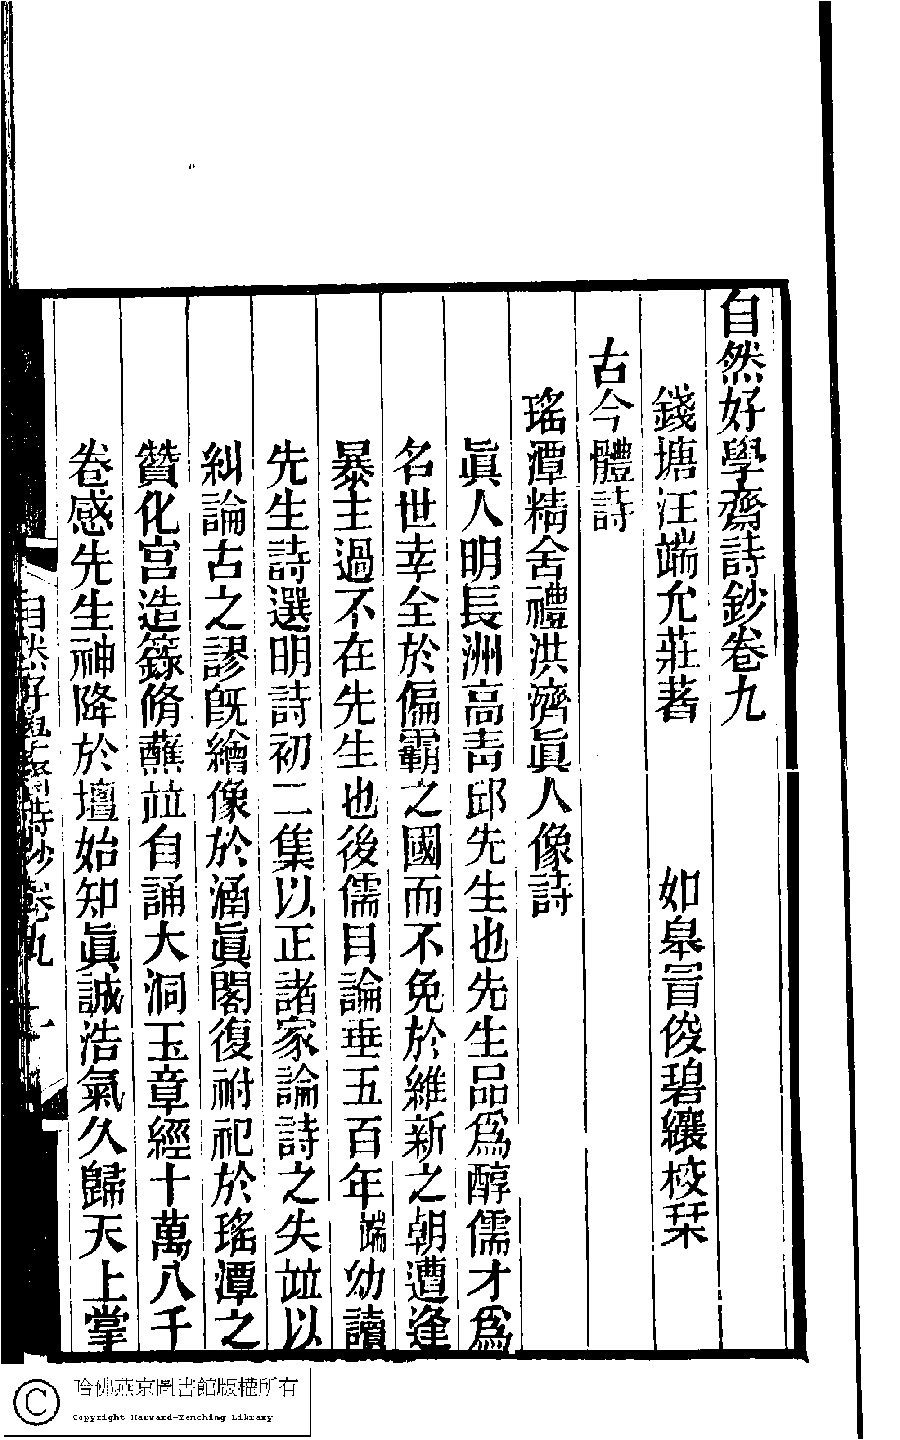 自然好學齋詩鈔卷九
錢塘汪端允莊著　如皋冒俊碧纕校栞
古今體詩
瑤潭精舍禮洪濟眞人像詩
眞人明長洲高靑邱先生也先生品爲醇儒才爲
名世幸全於偏霸之國而不免於維新之朝遭逢
暴主過不在先生也後儒目論垂五百年端幼讀
先生詩選明詩初二集以正諸家論詩之失竝以
糾論古之謬旣繪像於涵眞閣復祔祀於瑤潭之
贊化宮造籙脩醮竝自誦大洞玉章經十萬八千
卷感先生神降於壇始知眞誠浩氣久歸天上掌
自然好學齋詩鈔卷九　一
哈佛燕京圖書館版權所有
Copyright Harvard-Yenching Library